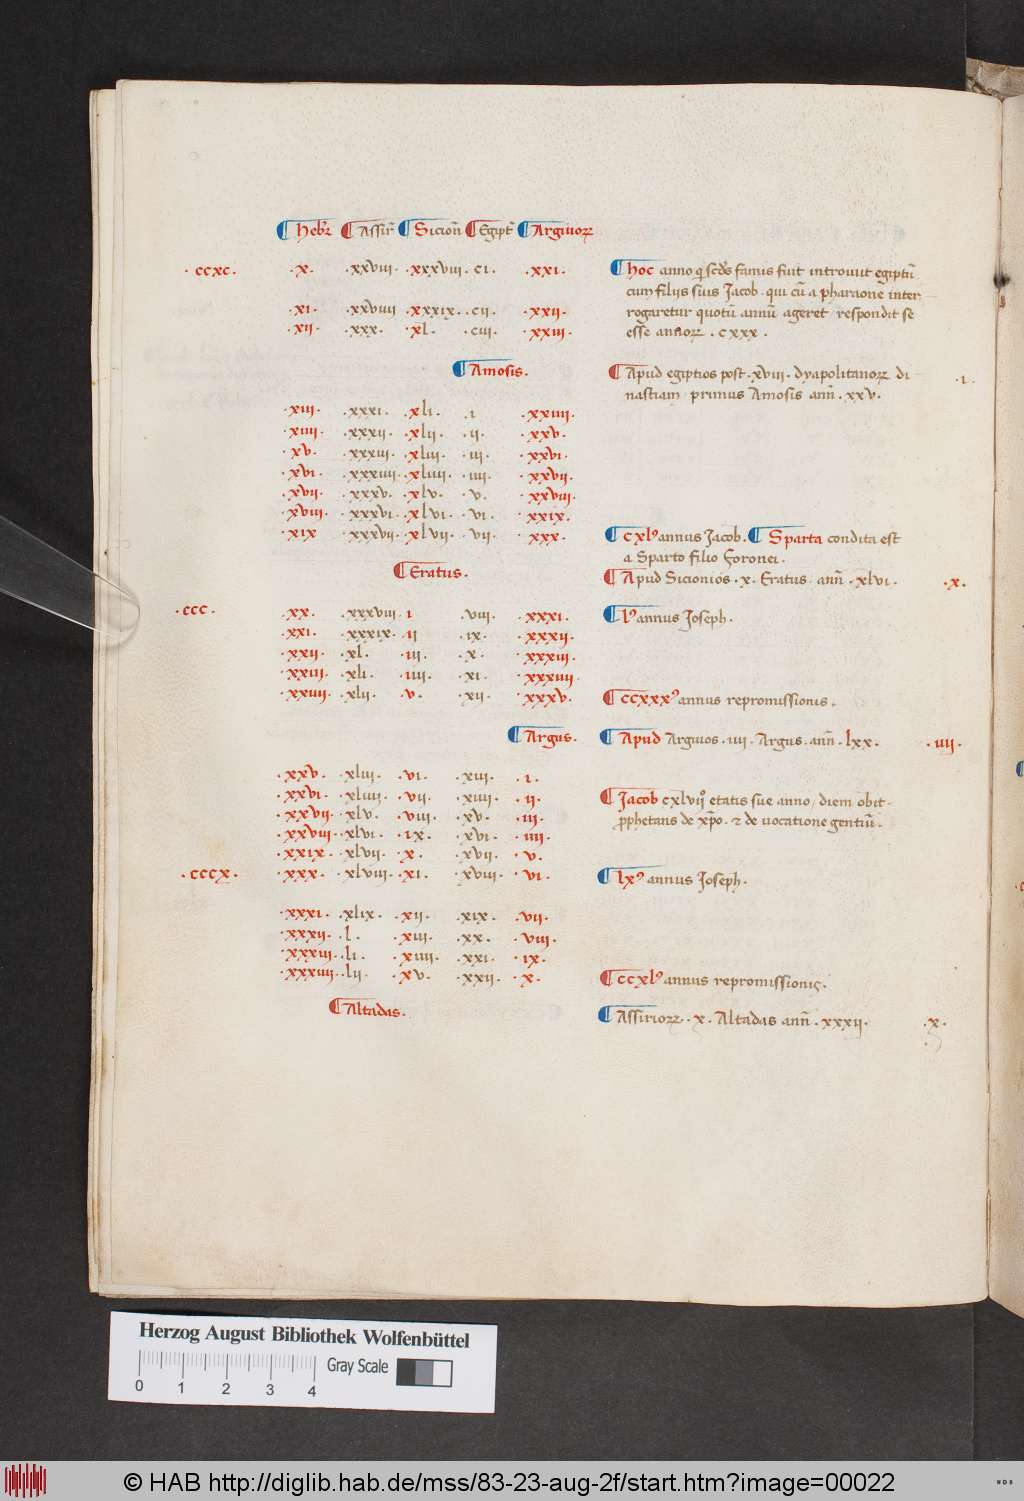 ¶ Hebꝛ ¶ Assir̃ ¶ Sicioñ ¶ Egipt̃ ¶ Argiuoꝝ
· ccxc · · x · · xxviii · · xxxviii · ci · · xxi · ¶ hoc anno q̃ scd̾s famis fuit introiuit egiptũ
cum filiis suis Jacob · qui cũ a pharaone inter
· xi · · xxviiii · xxxix · · cii · · xxii · rogaretur quotũ annũ ageret respondit se
· xii · · xxx · · xl · · ciii · · xxiii · esse annoꝝ · cxxx ·
¶ Amosis · ¶ Apud egiptios post · xviii · dyapolitanoꝝ di · i ·
nastiam primus Amosis añ · xxv ·
· xiii · · xxxi · · xli · · i · xxiiii ·
· xiiii · · xxxii · · xlii · · ii · · xxv ·
· xv · · xxxiii · · xliii · · iii · · xxvi ·
· xvi · · xxxiiii · · xliiii · · iiii · · xxvii ·
· xvii · · xxxv · · xlv · · v · · xxviii ·
· xviii · · xxxvi · · xlvi · · vi · · xxix ·
· xix · xxxvii · · xlvii · · vii · · xxx · ¶ cxlꝰ annus Jacob · ¶ Sparta condita est
a Sparto filio foronei ·
¶ Eratus · ¶ Apud Sicionios · x · Eratus añ · xlvi · · x ·
· ccc · · xx · · xxxviii · i · viii · · xxxi · ¶ lꝰ annus Joseph ·
· xxi · · xxxix · · ii · ix · · xxxii ·
· xxii · · xl · · iii · · x · · xxxiii ·
· xxiii · · xli · · iiii · · xi · · xxxiiii ·
· xxiiii · · xlii · · v · · xii · xxxv · ¶ ccxxxꝰ annus repromissionis ·
¶ Argus · ¶ Apud Argiuos · iiii · Argus · añ · lxx · · iiii ·
· xxv · · xliii · · vi · · xiii · · i ·
· xxvi · · xliiii · · vii · · xiiii · · ii · ¶ Jacob cxlvii° etatis sue anno / diem obit ·
· xxvii · · xlv · · viii · · xv · · iii · ꝓphetans de xp̃o · ⁊ de uocatione gentiũ ·
· xxviii · · xlvi · · ix · · xvi · · iiii ·
· xxix · · xlvii · · x · · xvii · · v ·
· cccx · · xxx · · xlviii · · xi · · xviii · · vi · ¶ lxꝰ annus Joseph ·
· xxxi · · xlix · · xii · · xix · · vii ·
· xxxii · · l · · xiii · · xx · · viii ·
· xxxiii · · li · · xiiii · · xxi · · ix ·
· xxxiiii · lii · · xv · · xxii · · x · ¶ ccxlꝰ annus repromissionis ·
¶ Altadas · ¶ Assirioꝝ · x · Altadas añ · xxxii · · x ·
Herzog August Bibliothek Wolfenbüttel
Gray Scale
0 1 2 3 4
© HAB http://diglib.hab.de/mss/83-23-aug-2f/start.htm?image=00022